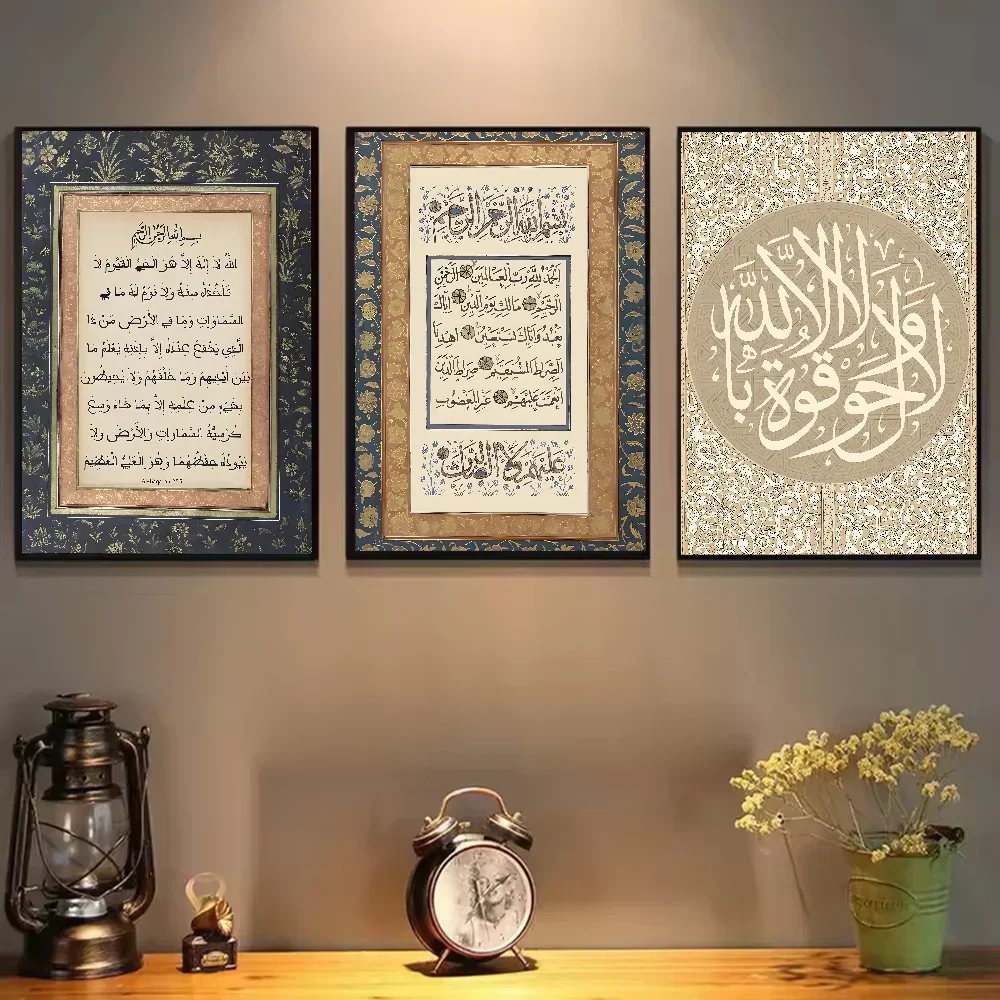 بسم الله الرحمن الرحيم
الله لا إله إلا هو الحي القيوم لا
تأخذه سنة ولا نوم له ما في
السماوات وما في الأرض من ذا
الذي يشفع عنده إلا بإذنه يعلم ما
بين أيديهم وما خلفهم ولا يحيطون
بشيء من علمه إلا بما شاء وسع
كرسيه السماوات والأرض ولا
يئوده حفظهما وهو العلي العظيم
بسم الله الرحمن الرحيم
الحمد لله رب العالمين الرحمن
الرحيم مالك يوم الدين اياك
نعبد واياك نستعين اهدنا
الصراط المستقيم صراط الذين
انعمت عليهم غير المغضوب
عليهم ولا الضالين
لا حول ولا قوة إلا بالله